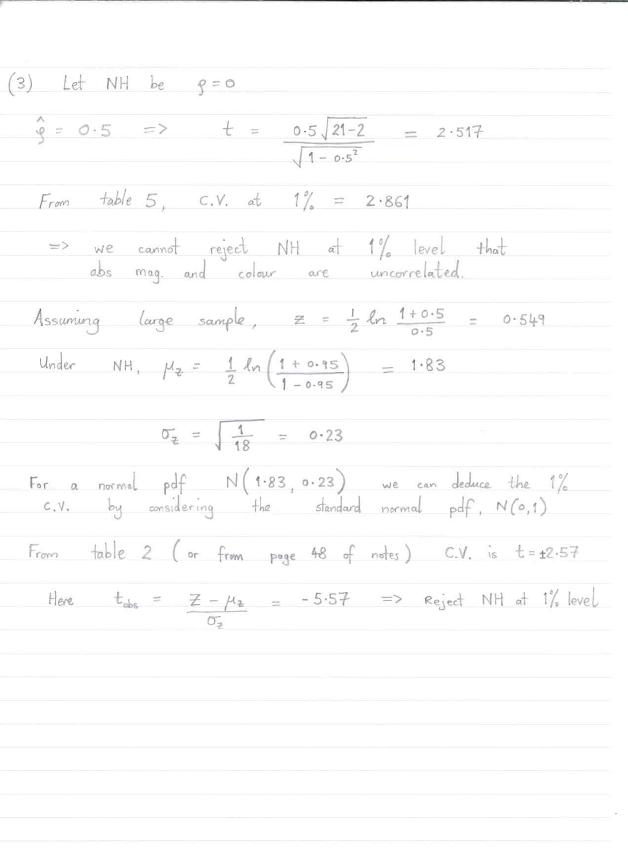 (3) Let NH be ρ = 0
ρ̂ = 0.5 => t = 0.5 √(21-2) / √(1 - 0.5²) = 2.517
From table 5, C.V. at 1% = 2.861
=> we cannot reject NH at 1% level that
abs mag. and colour are uncorrelated.
Assuming large sample, z = 1/2 ln (1+0.5)/0.5 = 0.549
Under NH, μz = 1/2 ln ( (1 + 0.95) / (1 - 0.95) ) = 1.83
σz = √(1/18) = 0.23
For a normal pdf N(1.83, 0.23) we can deduce the 1%
C.V. by considering the standard normal pdf, N(0,1)
From table 2 (or from page 48 of notes) C.V. is t = ±2.57
Here tobs = (z - μz) / σz = -5.57 => Reject NH at 1% level